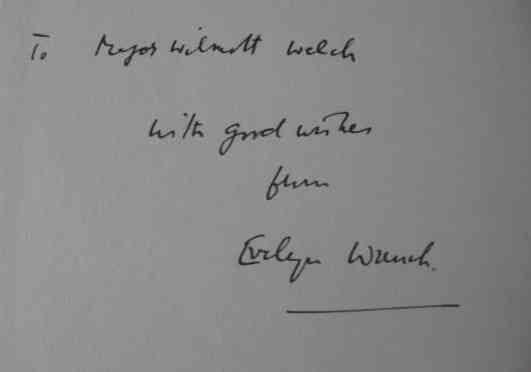 To Major Wilmott Welch
with good wishes
from
Evelyn Wrench.